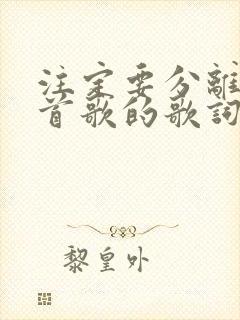 注定要分離
首歌的歌詞
黎皇外